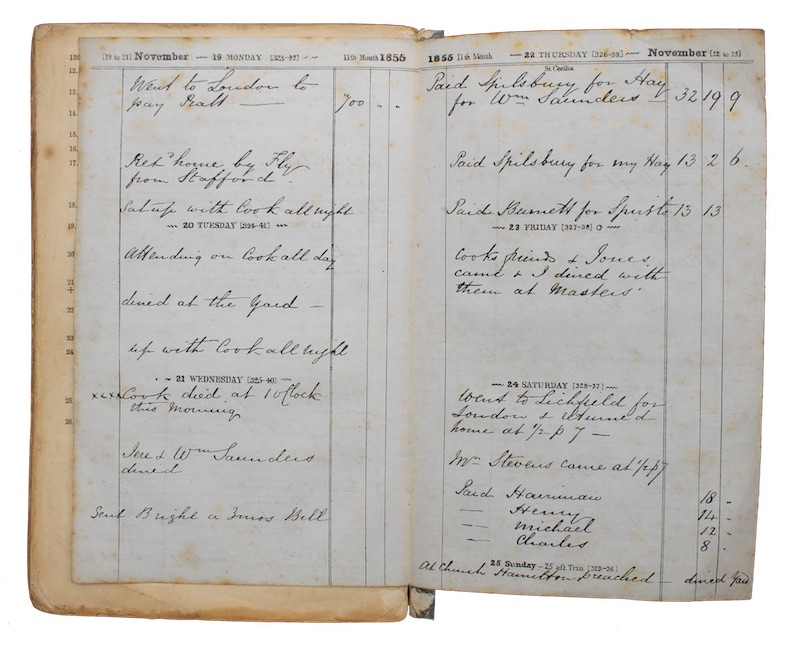 [19 to 21] November 19 MONDAY [323-42] 11th Month 1855
Went to London to
pay Pratt — 700 " "
Retd home by Fly
from Stafford.
Sat up with Cook all night
20 TUESDAY [324-41]
Attending on Cook all day
dined at the Yard —
up with Cook all night
21 WEDNESDAY [325-40]
xxxx Cook died at 1 oClock
this Morning
Jere & Wm Saunders
dined
Sent Bright a 3mos Bill
12.
13.
14.
15.
16.
17.
18.
19.
20.
21
+
22.
23
24
25.
26.
1855 11th Month 22 THURSDAY [326-39] November [22 to 25]
St Cecilia
Paid Spilsbury for Hay
for Wm Saunders — 32 19 9
Paid Spilsbury for my Hay 13 2 6.
Paid Burnett for Spirits 13 13
23 FRIDAY [327-38] O
Cooks friends & Jones
came & I dined with
them at Masters'
24 SATURDAY [328-37]
Went to Lichfield for
London & returned
home at 1/2 p 7 —
Mr Stevens came at 1/2 p 7
Paid Harriman 18 -
— Henry 14 -
— Michael 12 -
— Charles 8 -
25 Sunday - 25 aft Trin [329-36]
At Church Hamilton preached — dined Yard